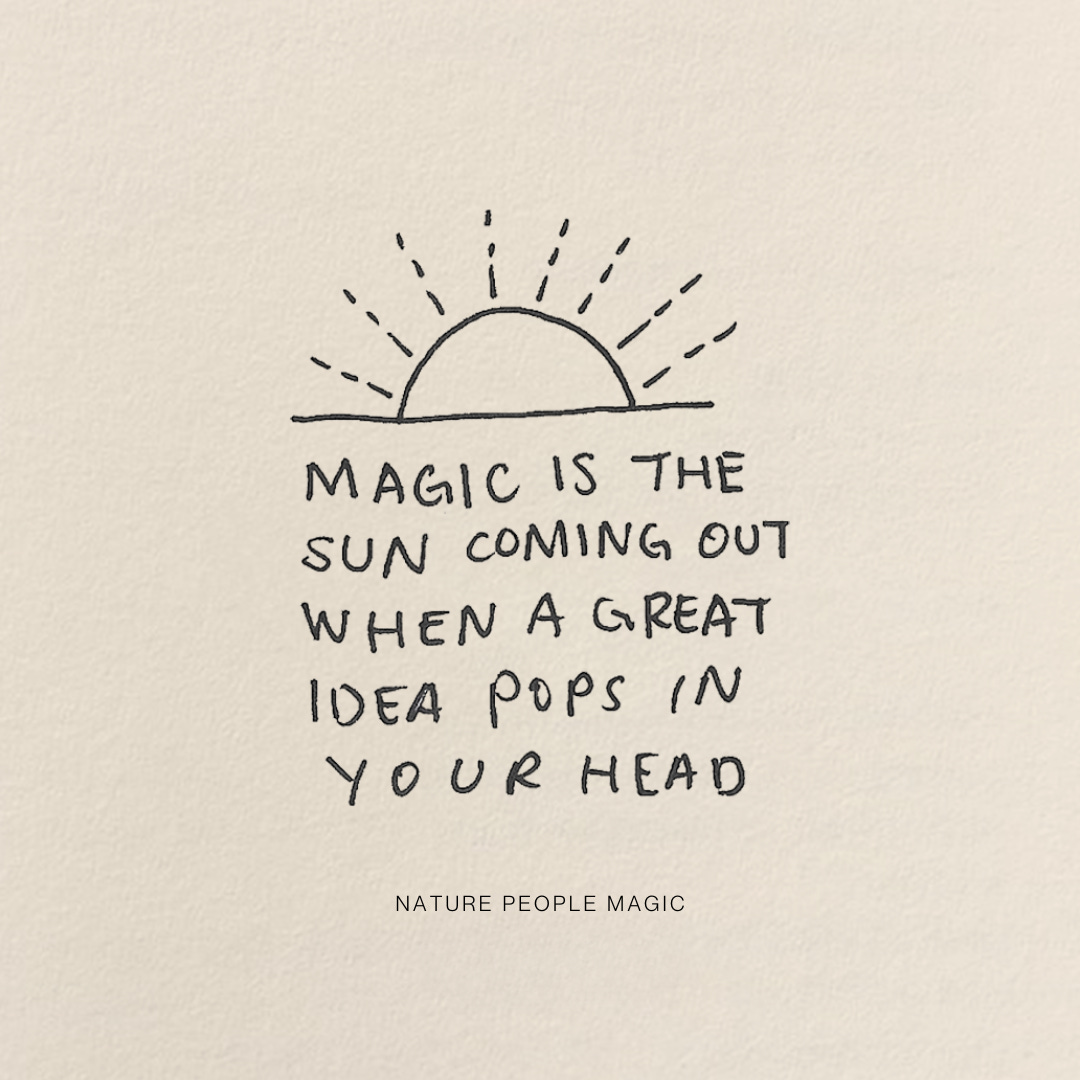 MAGIC IS THE
SUN COMING OUT
WHEN A GREAT
IDEA POPS IN
YOUR HEAD
NATURE PEOPLE MAGIC